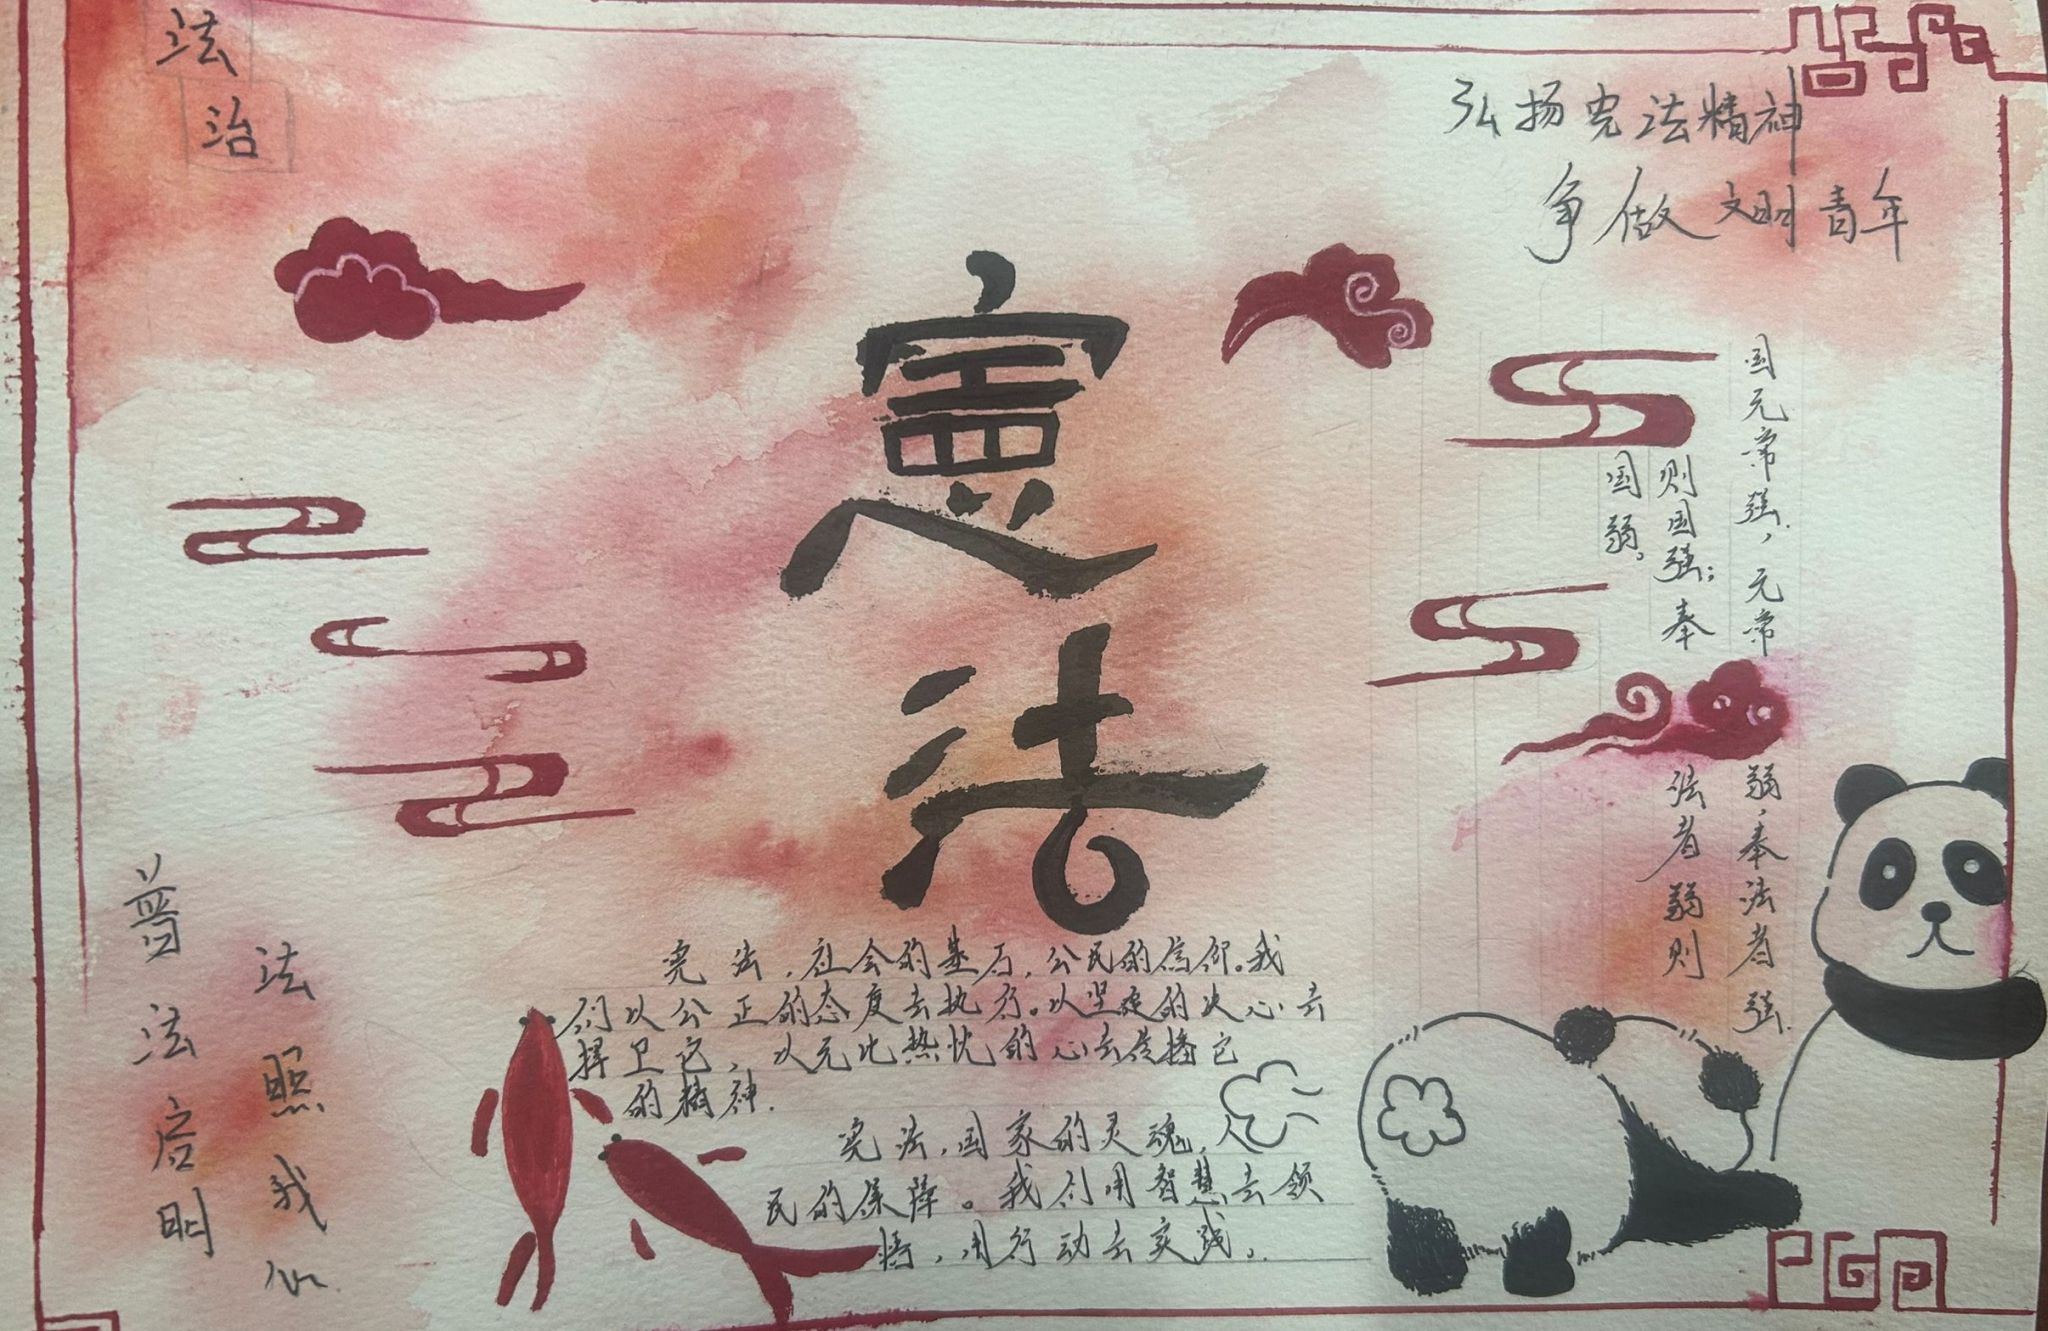 法
治
弘扬宪法精神
争做文明青年
憲
法
国无常强,无常
弱,奉法者强.
则国强;奉
法者弱则
国弱。
普法启明
法照我心
宪法,社会的基石,公民的信仰。我
们以公正的态度去执行。以坚定的决心去
捍卫它,以无比热忱的心去传播它
的精神.
宪法,国家的灵魂,人
民的保障。我们用智慧去领
悟,用行动去实践。